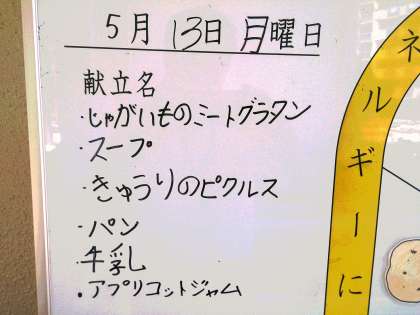 5月 13日 月曜日
献立名
・じゃがいものミートグラタン
・スープ
・きゅうりのピクルス
・パン
・牛乳
・アプリコットジャム
ネルギーに